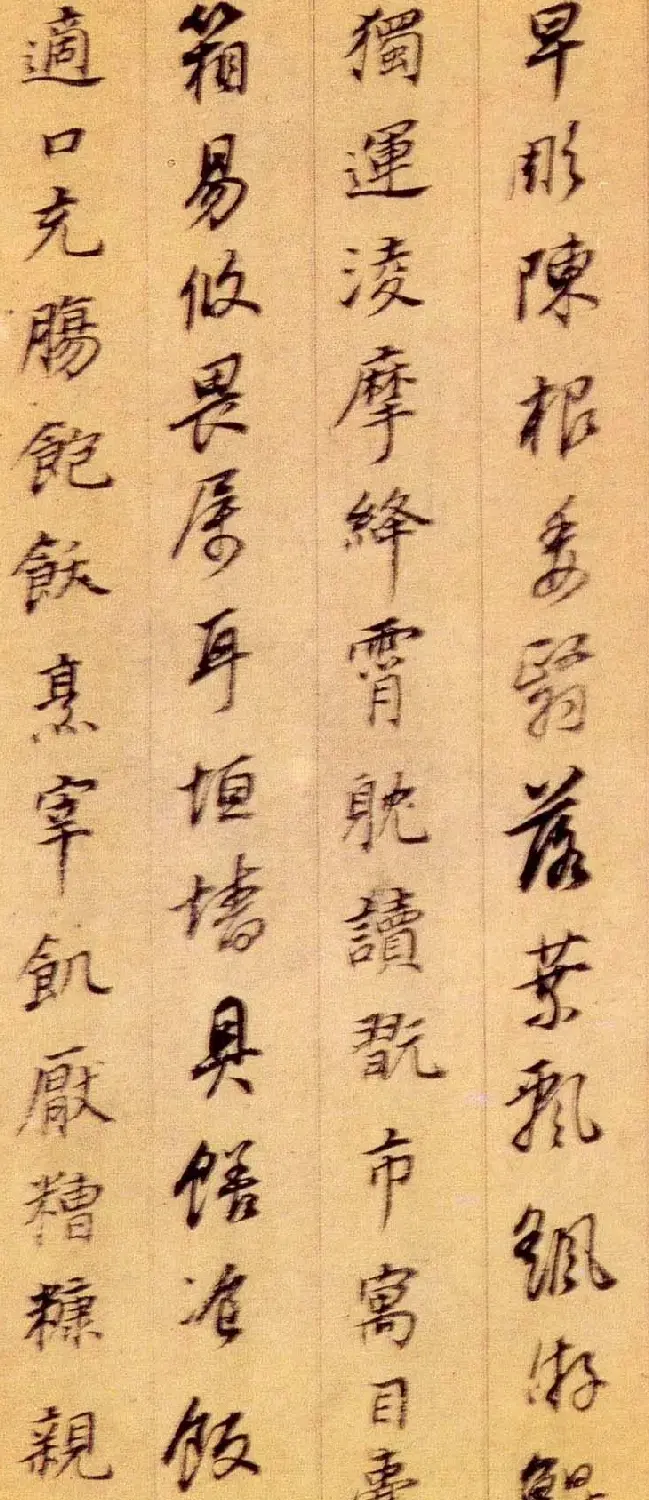 早彫陳根委翳落葉飄颻游鯤
獨運淩摩絳霄躭讀翫市寓目囊
箱易攸畏属耳垣墻具膳飡飯
適口充膓飽飫烹宰飢厭糟糠親